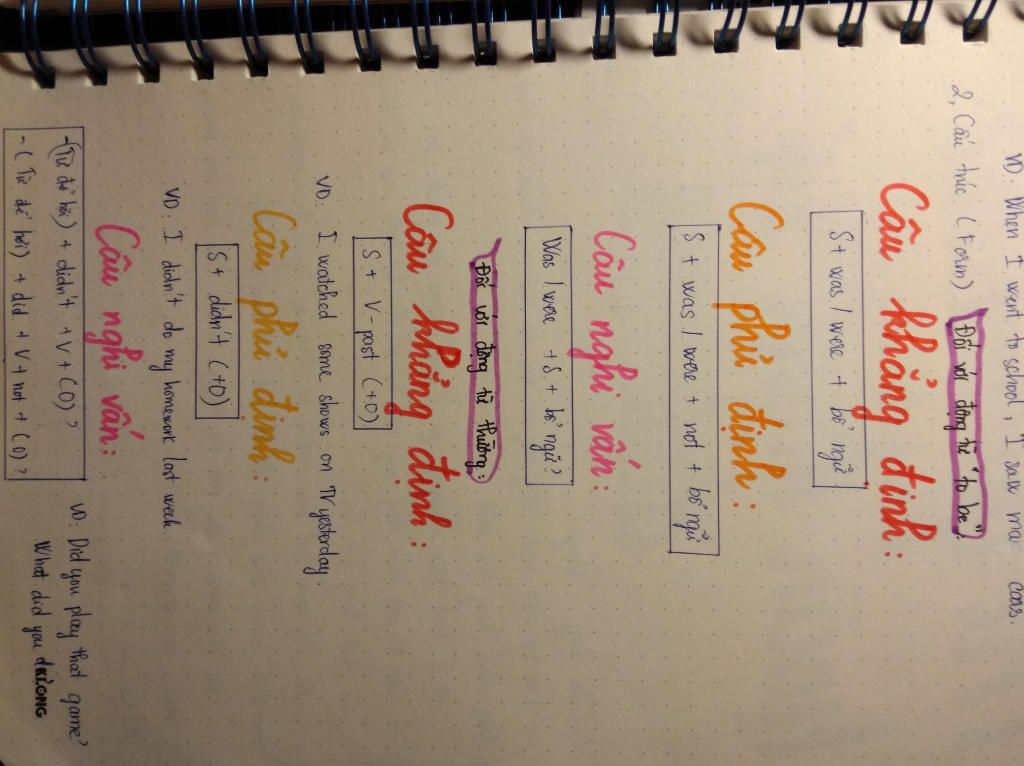 VD: When I went to school, I saw
cars.
2, Cấu trúc (Form) Đối với động từ "to be".
Câu khẳng định:
S + was / were + bổ ngữ
Câu phủ định:
S + was / were + not + bổ ngữ
Câu nghi vấn:
Was / were + S + bổ ngữ?
Đối với động từ thường:
Câu khẳng định:
S + V-past (+O)
VD: I watched some shows on TV yesterday.
Câu phủ định:
S + didn't (+O)
VD: I didn't do my homework last week.
Câu nghi vấn:
-(Từ để hỏi) + didn't + V + (O)?
-(Từ để hỏi) + did + V + not + (O)?
VD: Did you play that game?
What did you